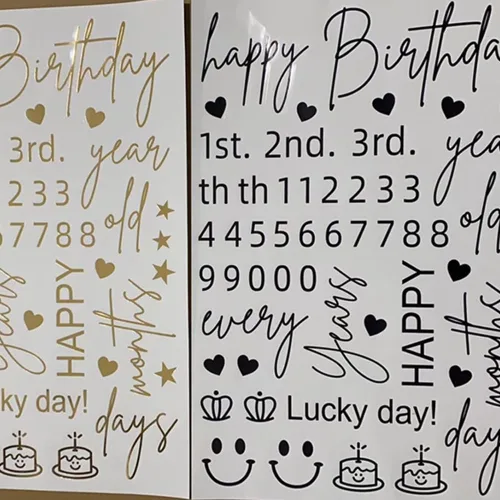 Birthday
3rd. year
2233
old
67788
years
HAPPY
months
ky day!
days
happy Birthda
1st. 2nd. 3rd. yea
th th 112233
old
445566778 8
99000
every
years
HAPPY
months
Lucky day!
day